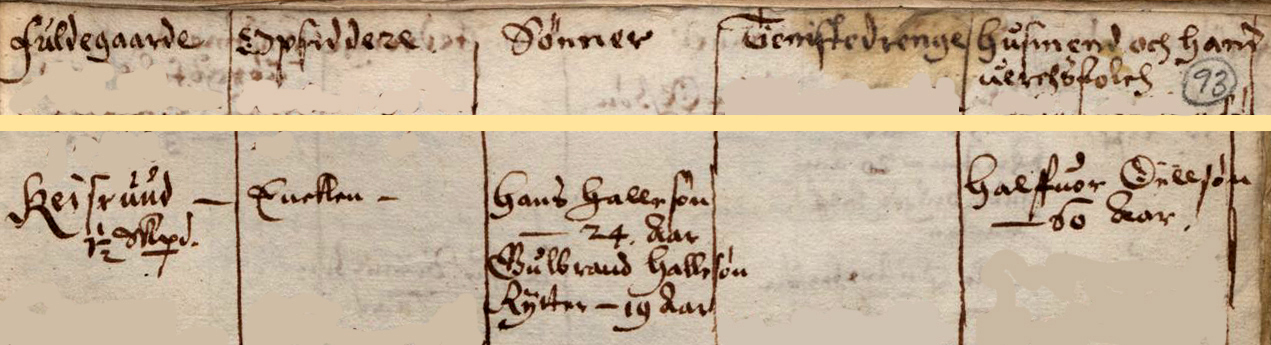 Fuldegaarde
Opsiddere
Sønner
Tenistedrenge
husmend och hand
uerchsfolch
93
Keisruud —
1 1/2 Skpd.
Encken —
Hans Hallesøn
— 24. Aar
Gulbrand Hallesøn
Rÿtter — 19 Aar
Halffuor
— 60 Aar.